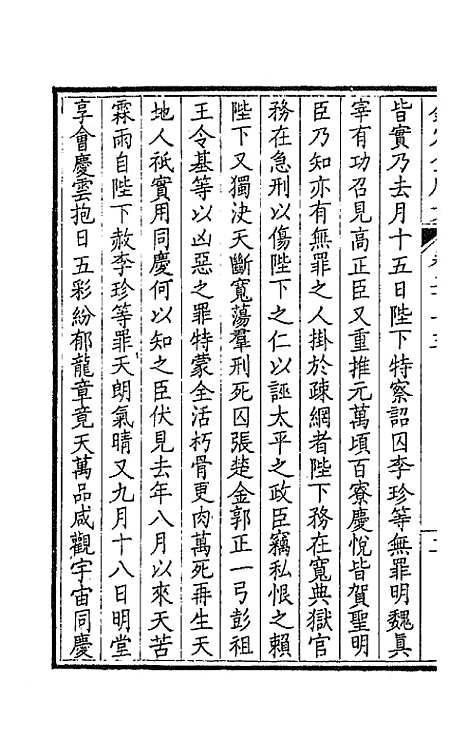 皆實乃去月十五日陛下特察詔囚李珍等無罪明魏真
宰有功召見高正臣又重推元萬頃百寮慶悅皆賀聖明
臣乃知亦有無罪之人掛於疎網者陛下務在寬典獄官
務在急刑以傷陛下之仁以誣太平之政臣竊私恨之賴
陛下又獨決天斷寬蕩羣刑死囚張楚金郭正一弓彭祖
王令基等以凶惡之罪特蒙全活朽骨更肉萬死再生天
地人祇實用同慶何以知之臣伏見去年八月以來天苦
霖雨自陛下赦李珍等罪天朗氣晴又九月十八日明堂
享會慶雲抱日五彩紛郁龍章竟天萬品咸觀宇宙同慶